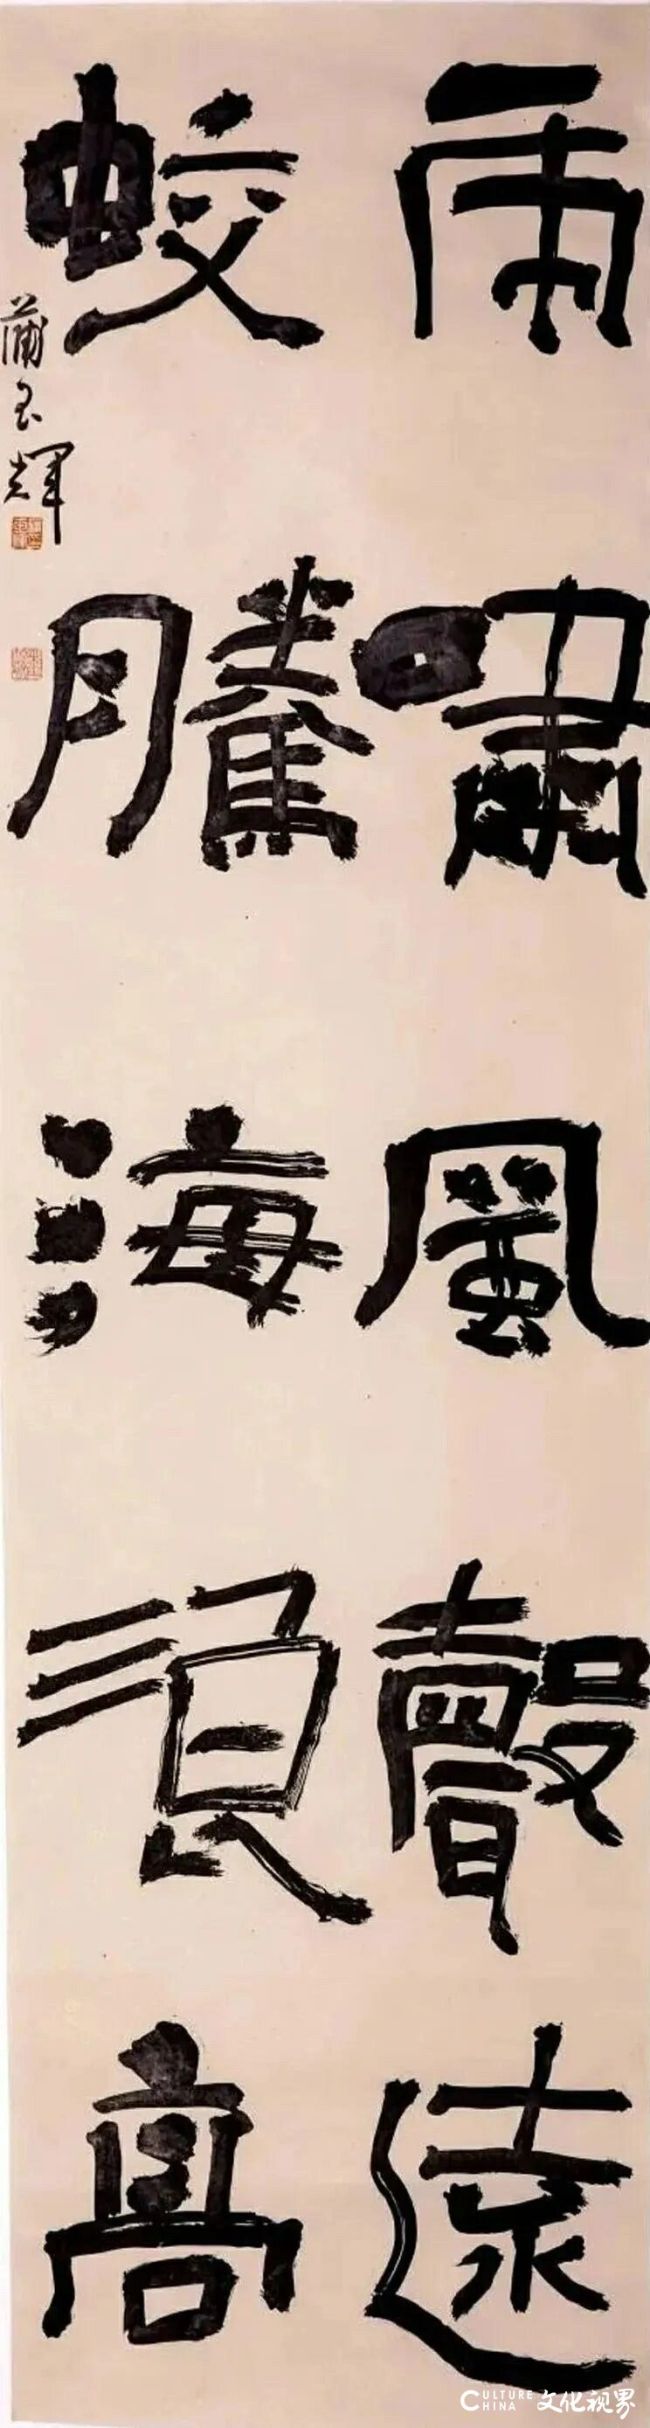 虎嘯風聲遠
蛟騰海浪高
蒲玉輝
CULTURE
CHINA 文化视界